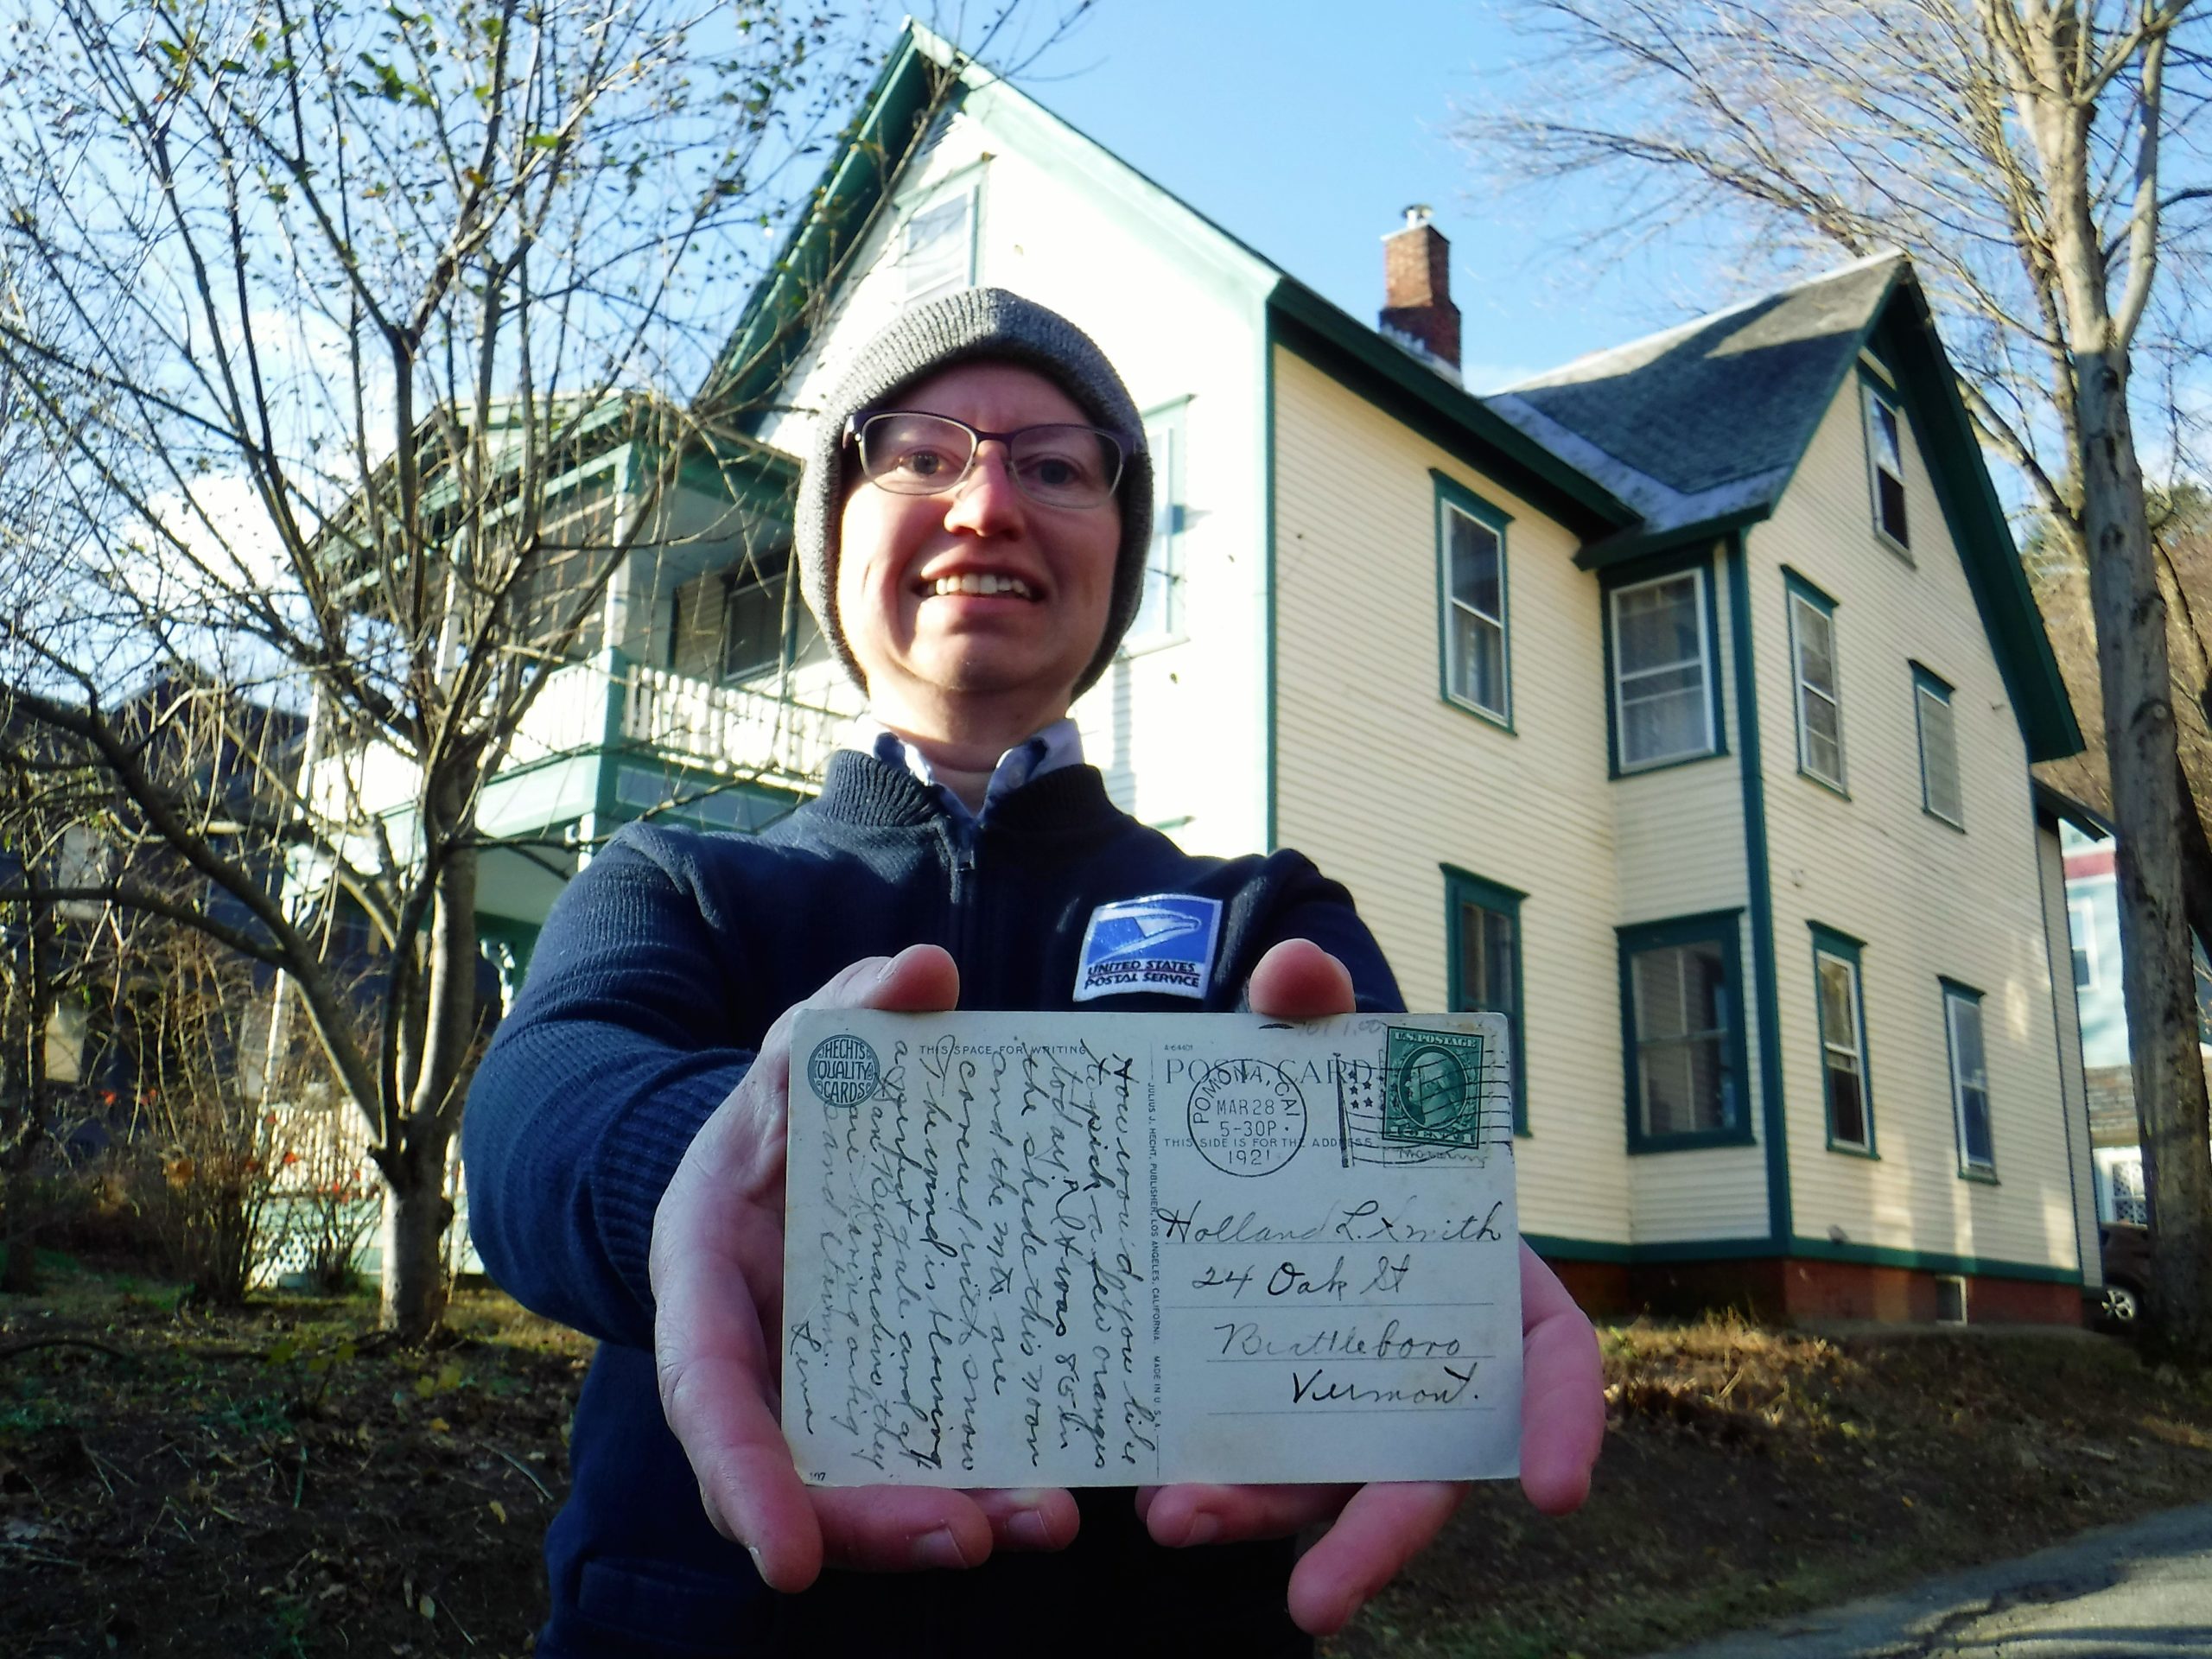 UNITED STATES
POSTAL SERVICE
HECHTS
QUALITY
CARDS
THIS SPACE FOR WRITING
How would you like
to pick a few oranges
today, It was 86 in
the shade this noon
and the mts. are
covered with snow
The wind is blowing
a perfect gale and at
San Bernardino they
are having a big
sand storm.
Lena
107
JULIUS J. HECHT, PUBLISHER, LOS ANGELES, CALIFORNIA. MADE IN U.S.A.
POST CARD
POMONA, CAL
MAR 28
5-30P.
1921
THIS SIDE IS FOR THE ADDRESS
U.S. POSTAGE
Holland L. Smith
24 Oak St
Brattleboro
Vermont.